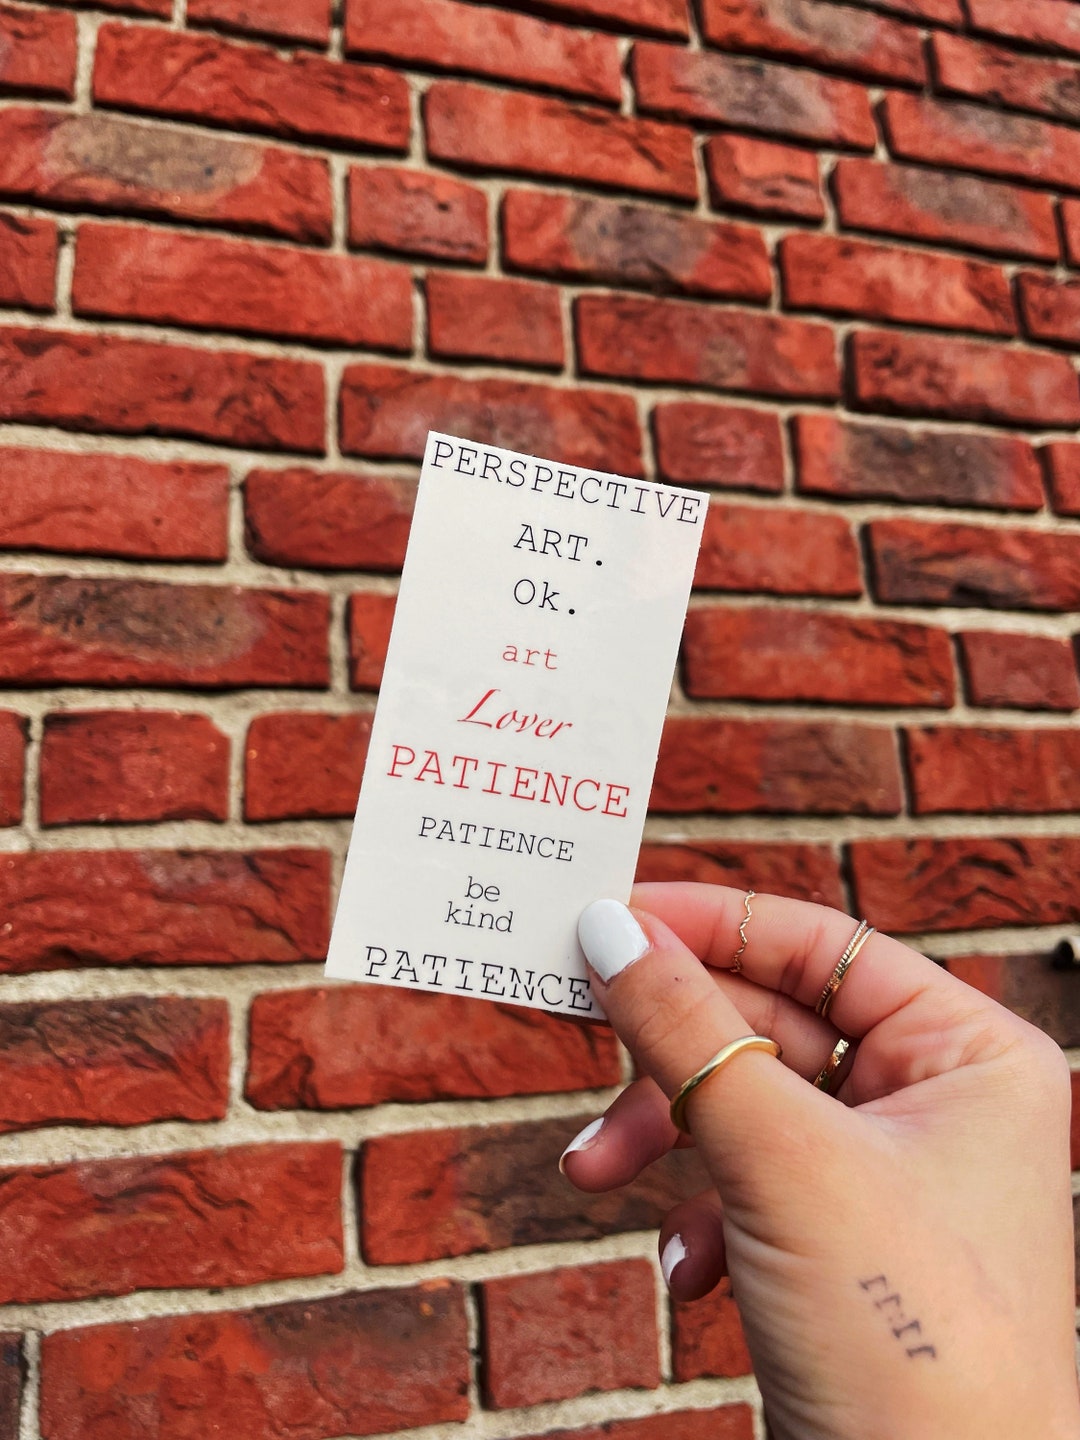 PERSPECTIVE
ART.
Ok.
art
Lover
PATIENCE
PATIENCE
be
kind
PATIENCE
11:11